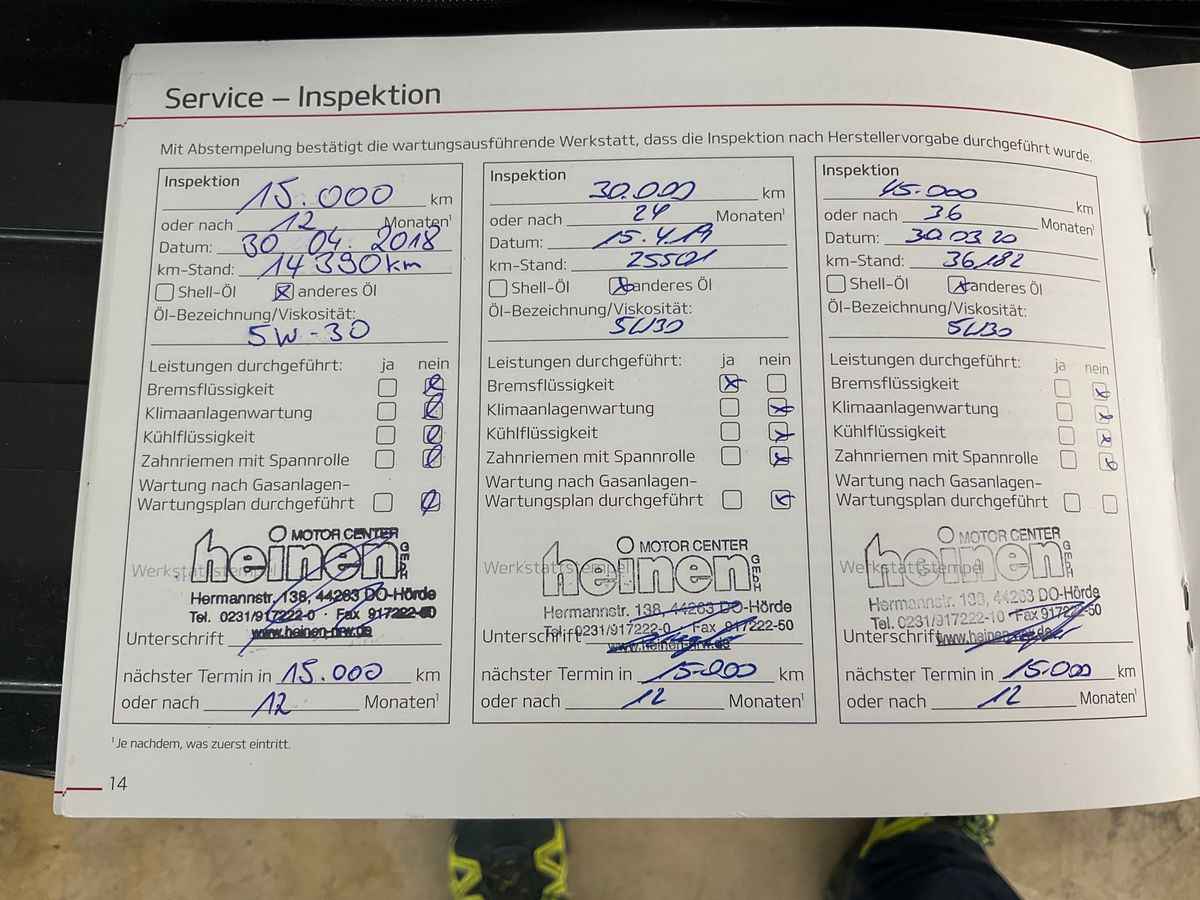 Service – Inspektion
Mit Abstempelung bestätigt die wartungsausführende Werkstatt, dass die Inspektion nach Herstellervorgabe durchgeführt wurde.
Inspektion
15.000 km
oder nach 12 Monaten¹
Datum: 30 04. 2018
km-Stand: 14 390 km
Shell-Öl anderes Öl
Öl-Bezeichnung/Viskosität:
5W-30
Leistungen durchgeführt: ja nein
Bremsflüssigkeit
Klimaanlagenwartung
Kühlflüssigkeit
Zahnriemen mit Spannrolle
Wartung nach Gasanlagen-
Wartungsplan durchgeführt
MOTOR CENTER
heinen GmbH
Werkstattstempel
Hermannstr. 138, 44263 DO-Hörde
Tel. 0231/917222-0 · Fax 917222-50
www.heinen-nrw.de
Unterschrift
nächster Termin in 15.000 km
oder nach 12 Monaten¹
Inspektion
30.000 km
oder nach 24 Monaten¹
Datum: 15.4.19
km-Stand: 25501
Shell-Öl anderes Öl
Öl-Bezeichnung/Viskosität:
5W30
Leistungen durchgeführt: ja nein
Bremsflüssigkeit
Klimaanlagenwartung
Kühlflüssigkeit
Zahnriemen mit Spannrolle
Wartung nach Gasanlagen-
Wartungsplan durchgeführt
MOTOR CENTER
heinen GmbH
Werkstattstempel
Hermannstr. 138, 44263 DO-Hörde
Tel. 0231/917222-0 · Fax 917222-50
www.heinen-nrw.de
Unterschrift
nächster Termin in 15.000 km
oder nach 12 Monaten¹
Inspektion
45.000 km
oder nach 36 Monaten¹
Datum: 30.03.20
km-Stand: 36182
Shell-Öl anderes Öl
Öl-Bezeichnung/Viskosität:
5W30
Leistungen durchgeführt: ja nein
Bremsflüssigkeit
Klimaanlagenwartung
Kühlflüssigkeit
Zahnriemen mit Spannrolle
Wartung nach Gasanlagen-
Wartungsplan durchgeführt
MOTOR CENTER
heinen GmbH
Werkstattstempel
Hermannstr. 138, 44263 DO-Hörde
Tel. 0231/917222-10 · Fax 917222-50
www.heinen-nrw.de
Unterschrift
nächster Termin in 15.000 km
oder nach 12 Monaten¹
¹ Je nachdem, was zuerst eintritt.
14